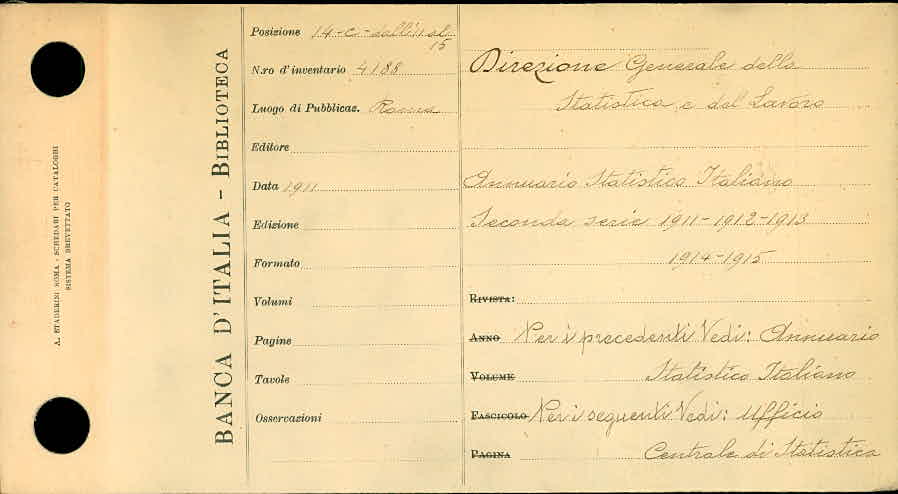 A. STADERINI ROMA - SCHEDARI PER CATALOGHI
SISTEMA BREVETTATO
BANCA D'ITALIA - BIBLIOTECA
Posizione 14-C-dall'11 al
15
N.ro d'inventario 4188
Luogo di Pubblicaz. Roma
Editore
Data 1911
Edizione
Formato
Volumi
Pagine
Tavole
Osservazioni
Direzione Generale della
Statistica e del Lavoro
Annuario Statistico Italiano
Seconda serie 1911-1912-1913
1914-1915
RIVISTA:
ANNO Per i precedenti Vedi: Annuario
VOLUME Statistico Italiano
FASCICOLO Per i seguenti Vedi: Ufficio
PAGINA Centrale di Statistica